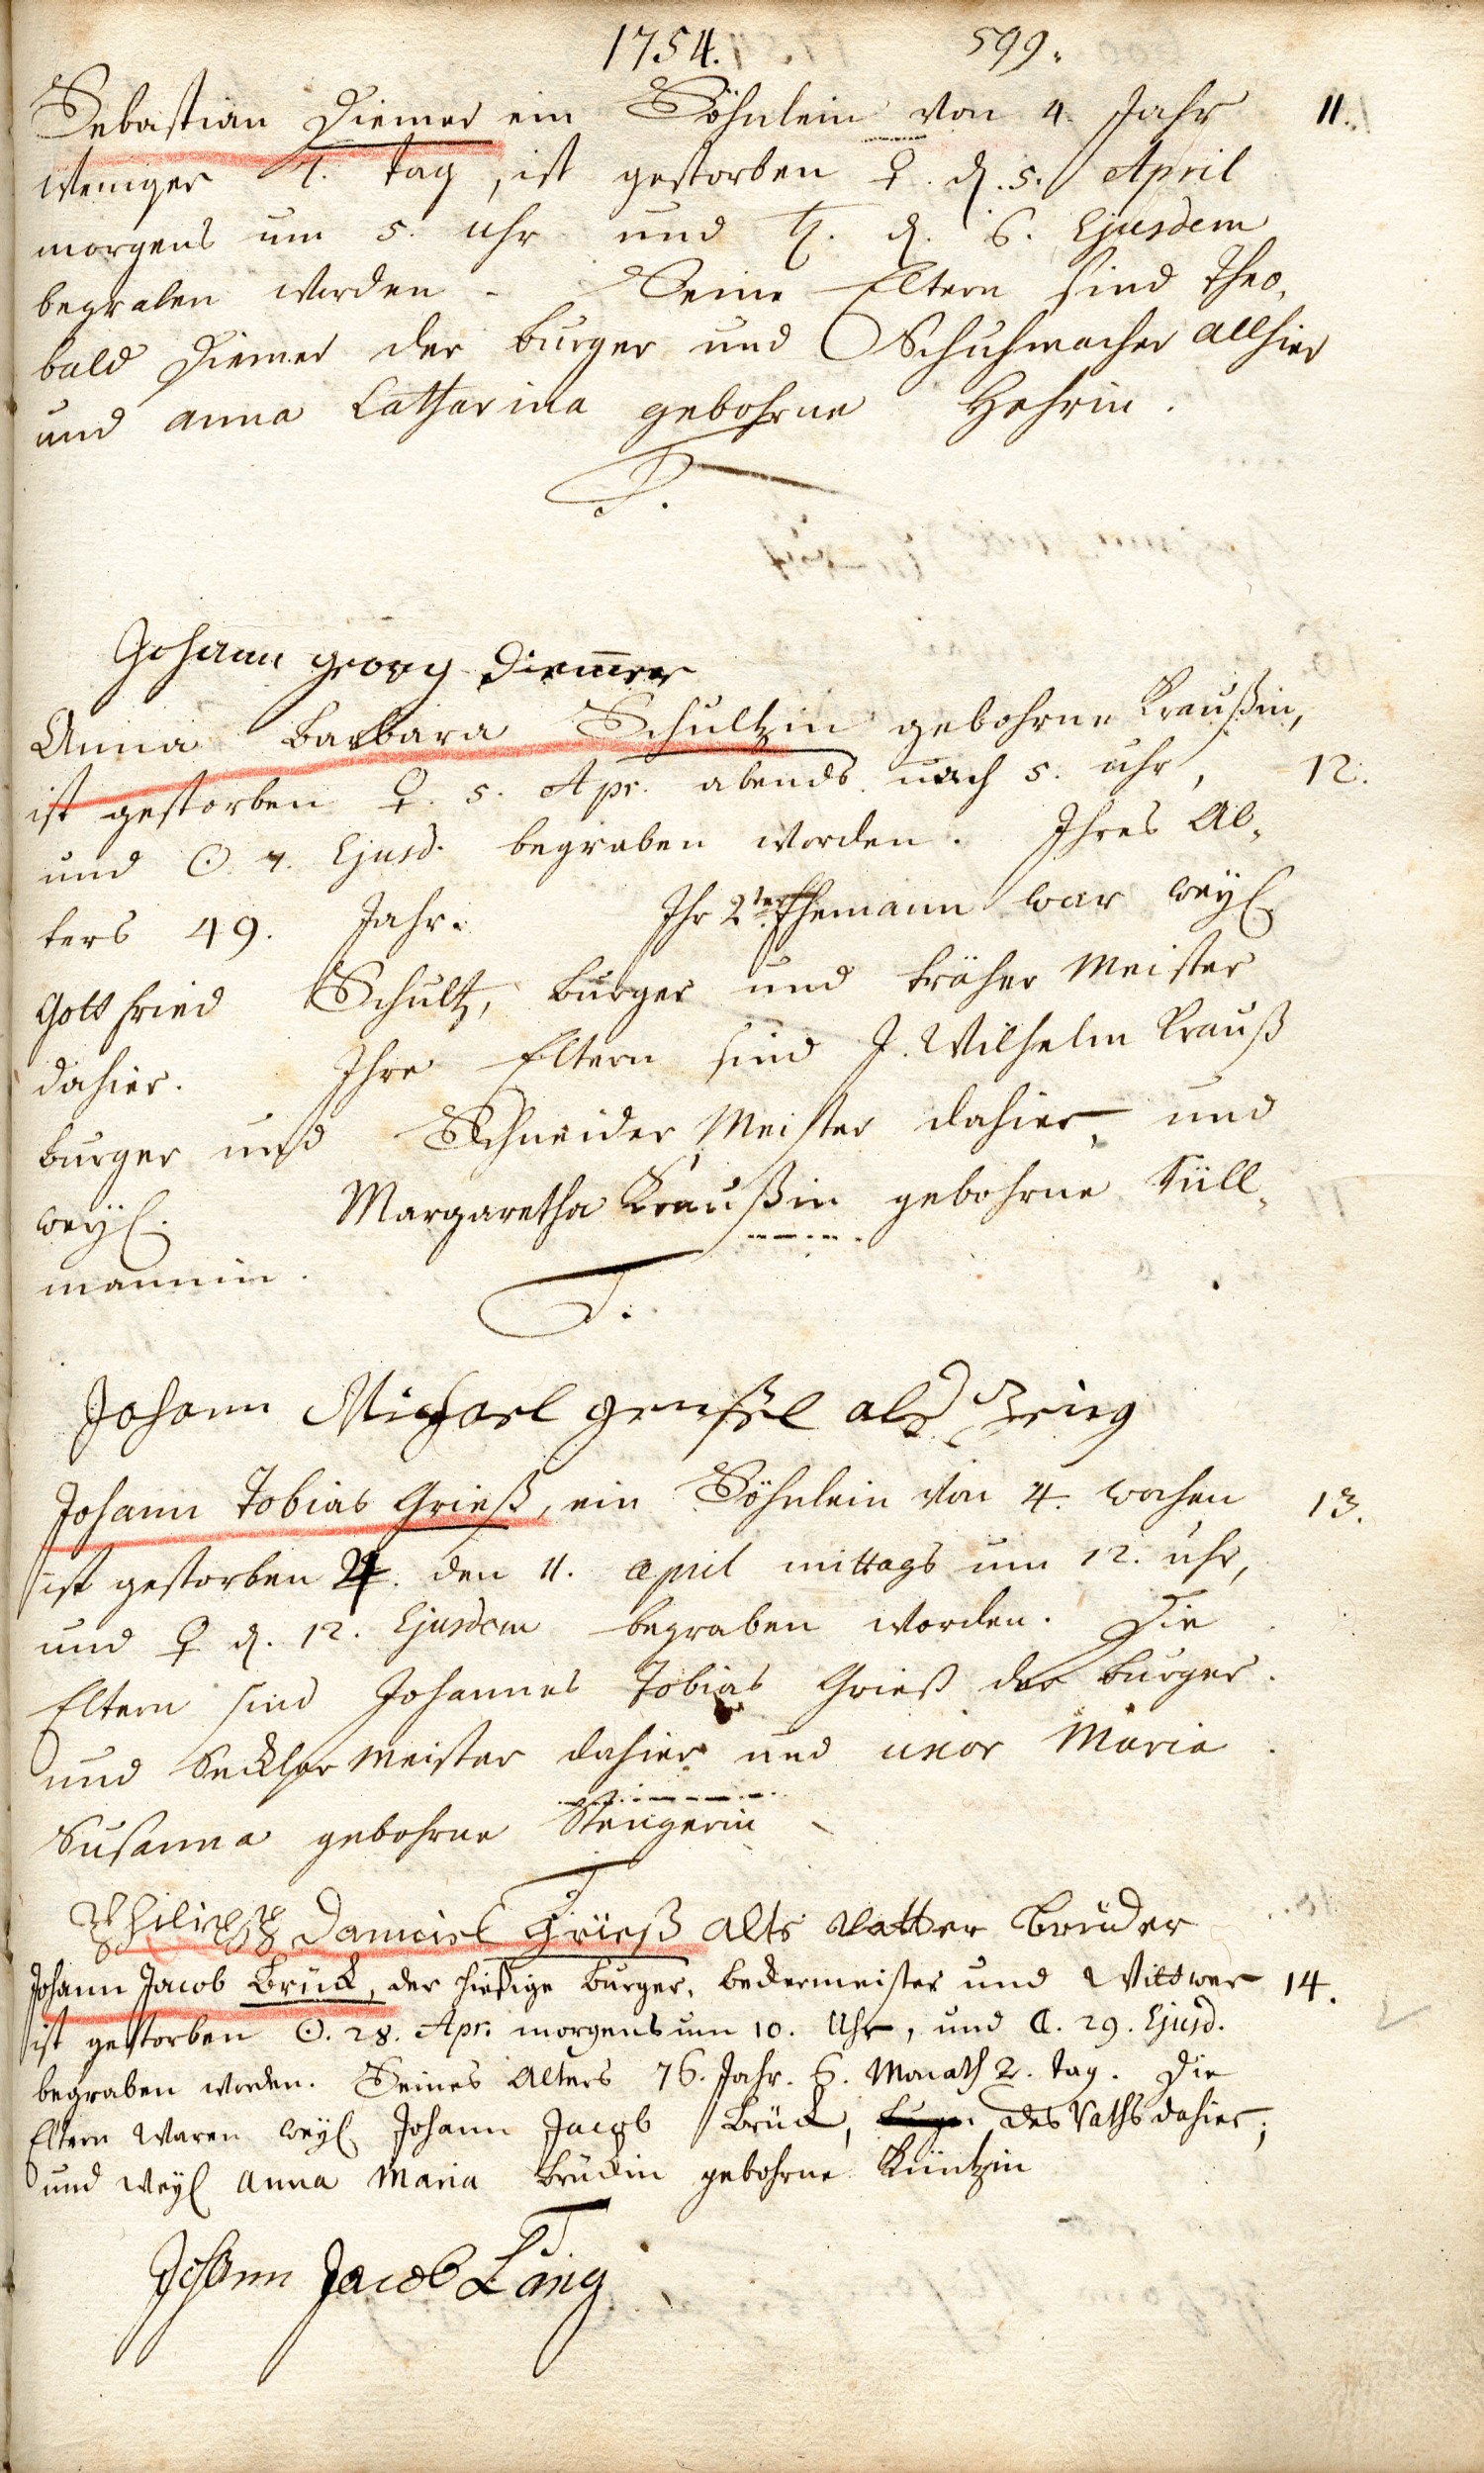 1754. 599.
Sebastian Diemer ein Söhnlein von 4. Jahr 11.
weniger 1. tag, ist gestorben ♀. d. 5. April
morgens um 5. uhr und ♄. d. 6. Ejusdem
begraben worden. Seine Eltern sind Theo-
bald Diemer der burger und Schuhmacher allhier
und anna Catharina gebohrne Hehrin.
Johann georg Diem̄er
Anna Barbara Schultzin gebohrne Kraußin,
ist gestorben ♀. 5. Apr. abends nach 5. uhr, 12.
und ☉. 7. Ejusd. begraben worden. Ihres Al-
ters 49. Jahr. Ihr 2ter Ehemann war weyl.
Gottfried Schultz, burger und Meister
dahier. Ihre Eltern sind J. Wilhelm Krauß
burger und Schneider Meister dahier, und
weyl. Margaretha Kraußin gebohrne Süll-
mannin.
Johann Michael genßel als Zeüg
Johann Tobias Grieß, ein Söhnlein von 4. wochen 13.
ist gestorben ♃. den 11. april mittags um 12. uhr,
und ♀ d. 12. Ejusdem begraben worden. Die
Eltern sind Johannes Tobias Grieß der burger
und Seckler Meister dahier und uxor Maria
Susanna gebohrne Stengerin
Philipp Daniel Grieß alts vatter bruder
Johann Jacob Brück, der hiesige burger, beckermeister und Wittwer 14.
ist gestorben ☉. 28. Apr. morgens um 10. Uhr, und ☾. 29. Ejusd.
begraben worden. Seines Alters 76. Jahr. 6. Monath 2. tag. Die
Eltern waren weyl. Johann Jacob Brück, des Raths dahier,
und weyl. Anna Maria Brückin gebohrne Küntzin
Johann Jacob Lang